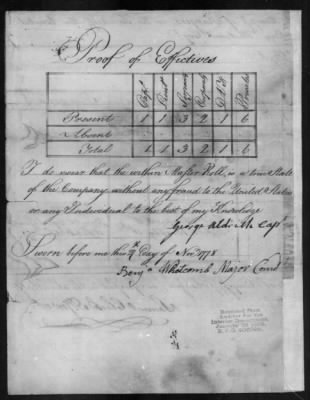 Proof of Effectives
Capt Lieut Serjents Corporals D & F Privates
Present 1 1 3 2 1 6
Absent
Total 1 1 3 2 1 6
I do swear that the within Muster Roll is a true State
of the Company without any fraud to the United States
or any Individual to the best of my Knowledge
George Aldrich Capt
Sworn before me this 9th Day of Novr 1778
Benja Whitcomb Major Comd
Received from
Auditor for the
Interior Department,